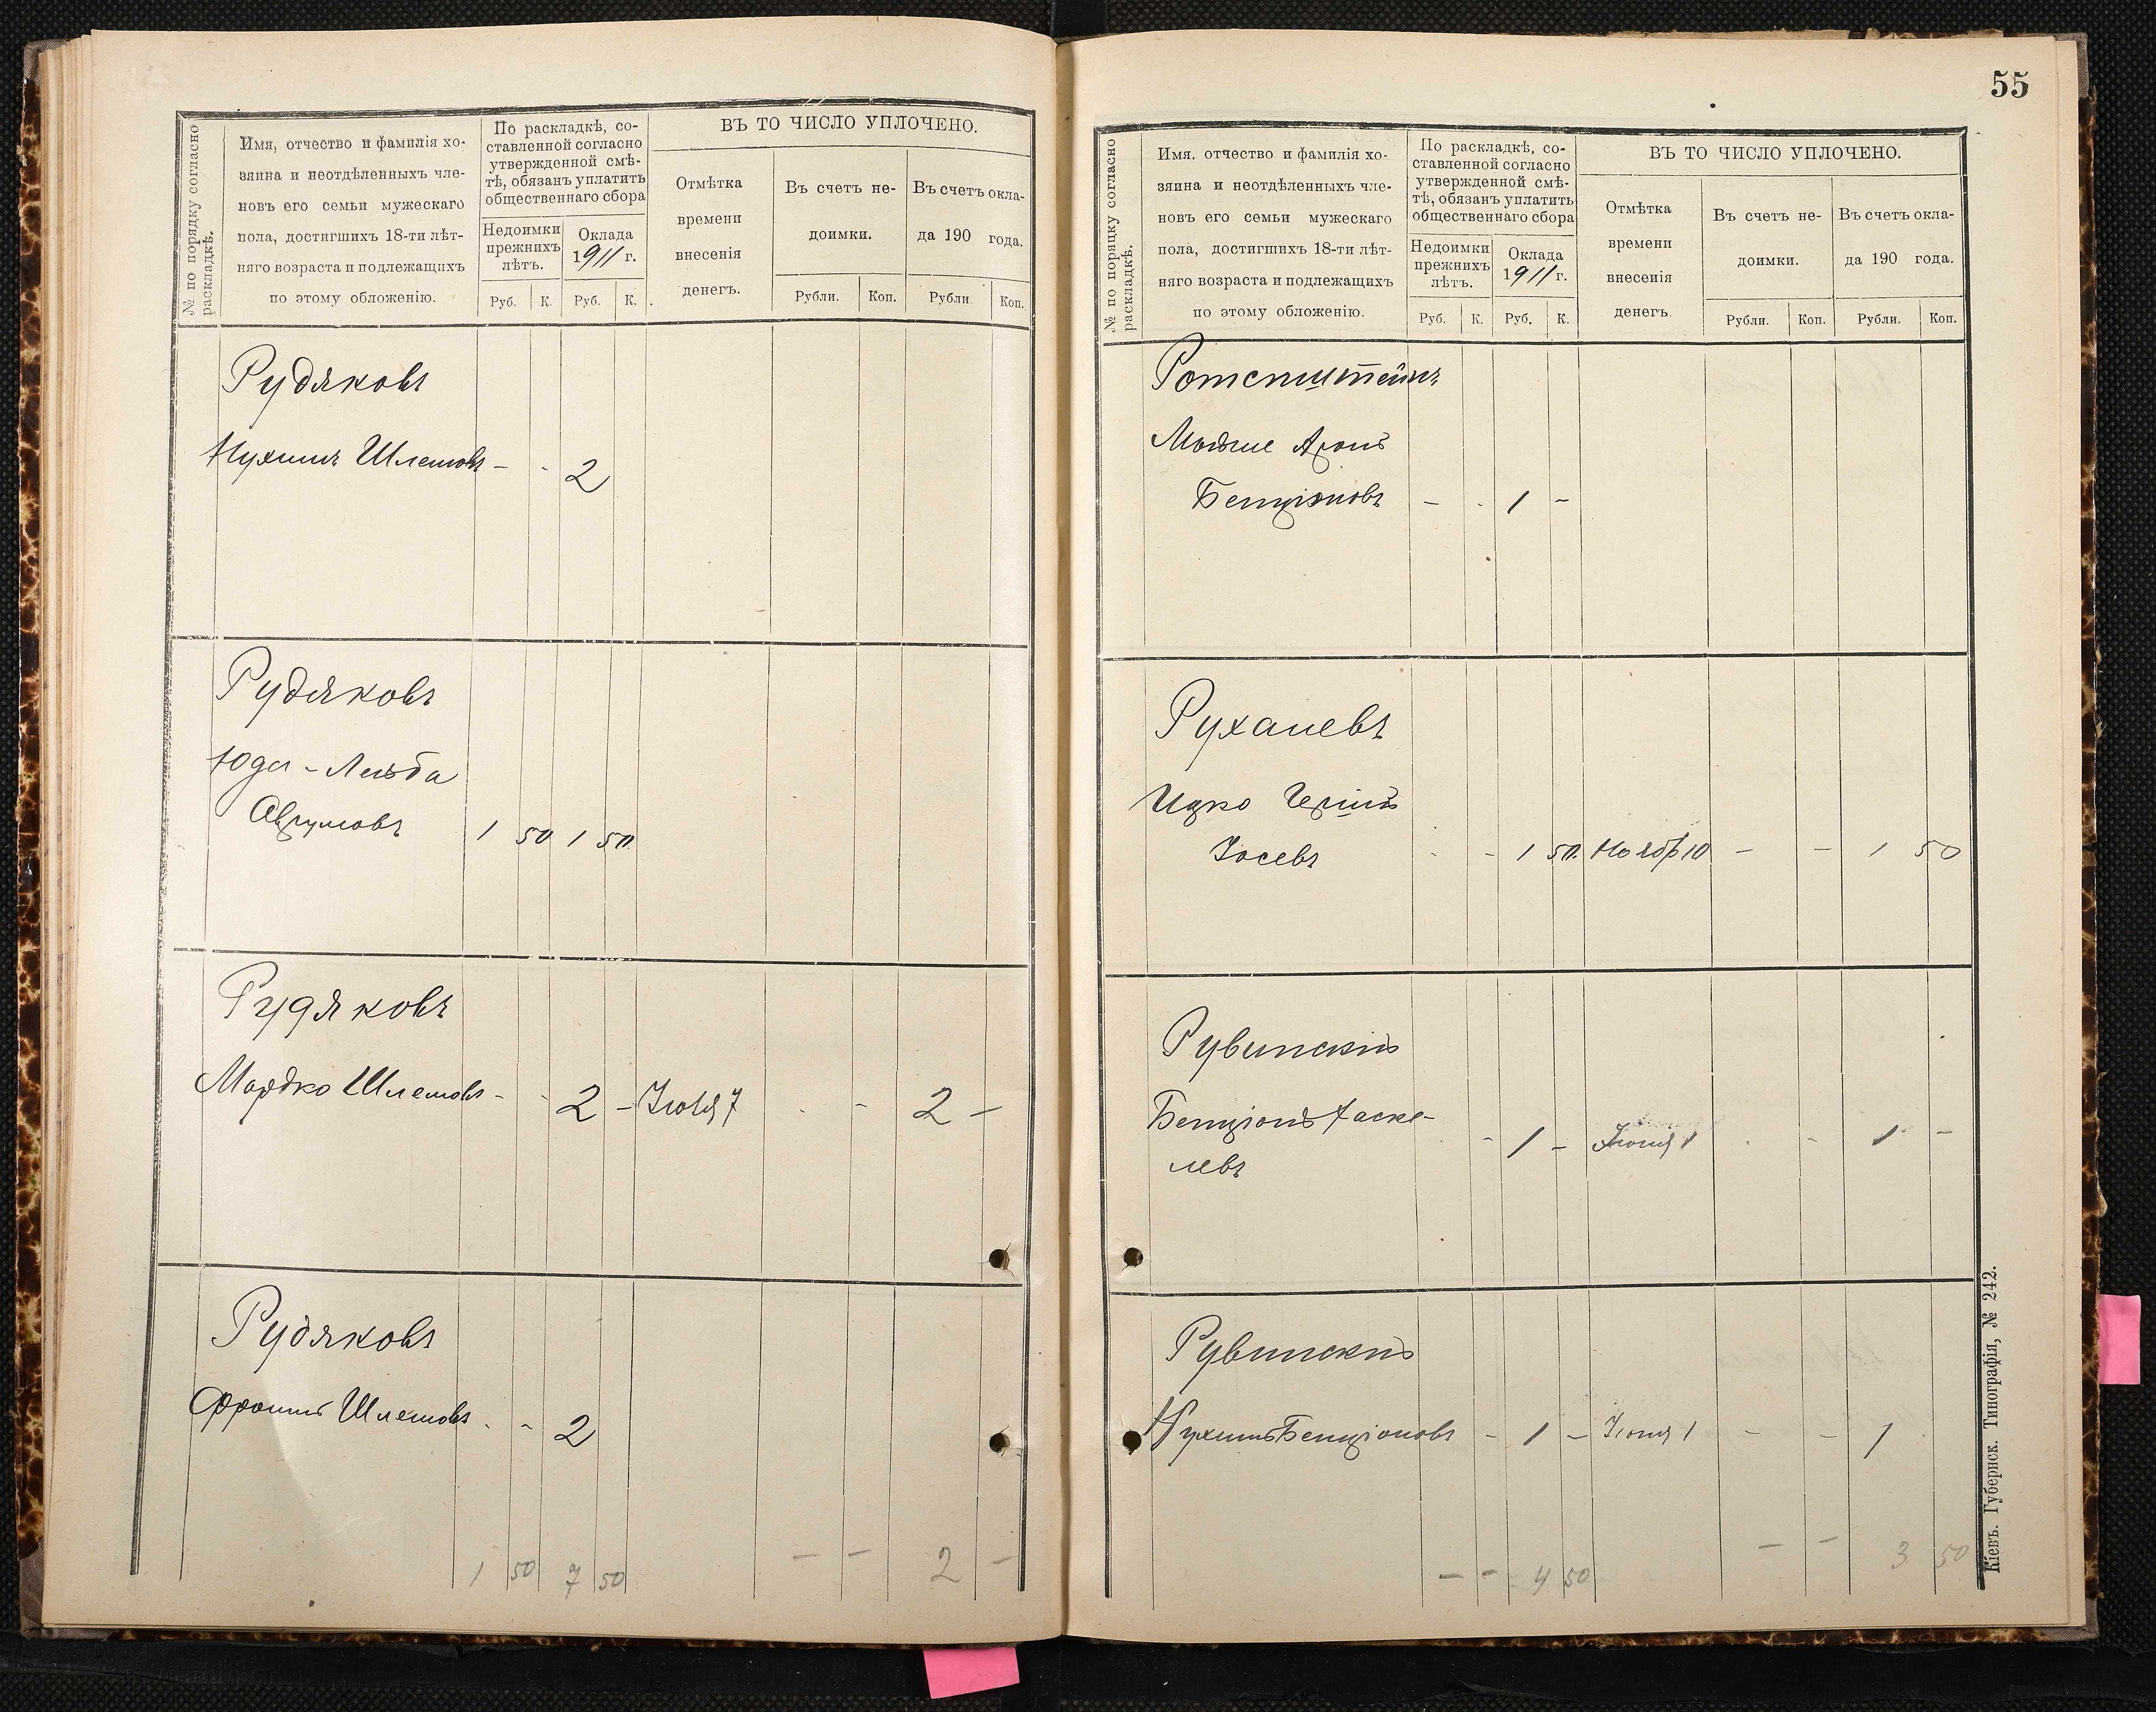 № по порядку согласно раскладкѣ.
Имя, отчество и фамилія хо-
зяина и неотдѣленныхъ чле-
новъ его семьи мужескаго
пола, достигшихъ 18-ти лѣт-
няго возраста и подлежащихъ
по этому обложенію.
По раскладкѣ, со-
ставленной согласно
утвержденной смѣ-
тѣ, обязанъ уплатить
общественнаго сбора
Недоимки
прежнихъ
лѣтъ.
Оклада
1911 г.
Руб. К. Руб. К.
ВЪ ТО ЧИСЛО УПЛОЧЕНО.
Отмѣтка
времени
внесенія
денегъ.
Въ счетъ не-
доимки.
Въ счетъ окла-
да 190 года.
Рубли. Коп. Рубли Коп.
Рудяковъ
Нухимъ Шлемовъ - - 2
Рудяковъ
Юда-Лейба
Аврумовъ 1 50 1 50
Рудяковъ
Мордко Шлемовъ - - 2 - Іюля 7 - - 2 -
Рудяковъ
Фроимъ Шлемовъ - - 2
1 50 7 50 - - 2 -
55
№ по порядку согласно раскладкѣ.
Имя, отчество и фамилія хо-
зяина и неотдѣленныхъ чле-
новъ его семьи мужескаго
пола, достигшихъ 18-ти лѣт-
няго возраста и подлежащихъ
по этому обложенію.
По раскладкѣ, со-
ставленной согласно
утвержденной смѣ-
тѣ, обязанъ уплатить
общественнаго сбора
Недоимки
прежнихъ
лѣтъ.
Оклада
1911 г.
Руб. К. Руб. К.
ВЪ ТО ЧИСЛО УПЛОЧЕНО.
Отмѣтка
времени
внесенія
денегъ
Въ счетъ не-
доимки.
Въ счетъ окла-
да 190 года.
Рубли. Коп. Рубли. Коп.
Мойше Аронъ
Бенціоновъ - - 1 -
Руханевъ
Ицко Гершъ
Іосевъ - - 1 50 Ноябр 10 - - 1 50
Рувинскій
Бенціонъ Хаске-
левъ - 1 - Іюня 1 - - 1 -
Рувинскій
Нухимъ Бенціоновъ - 1 - Іюня 1 - - 1
- - 4 50 - - 3 50
Кіевъ. Губернск. Типографія, № 242.